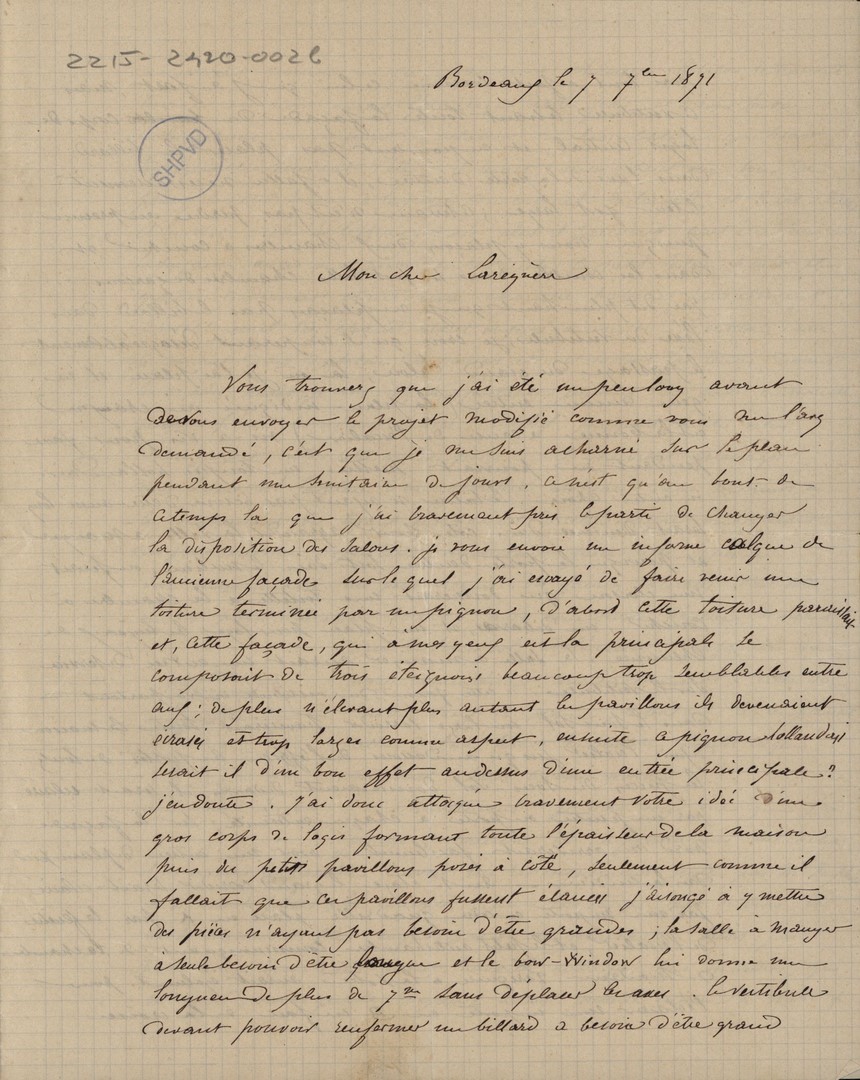 2215-2420-0026
Bordeaux le 7 7bre 1871
SHPVD
Mon cher
Vous trouverez que j'ai été un peu long avant
de vous envoyer le projet modifié comme vous me l'avez
demandé, c'est que je me suis acharné sur le plan
pendant une huitaine de jours, ce n'est qu'au bout de
ce temps là que j'ai bravement pris le parti de changer
la disposition des salons. je vous envoie un informe calque de
l'ancienne façade sur lequel j'ai essayé de faire venir une
toiture terminée par un pignon, d'abord cette toiture paraissait
et, cette façade, qui à mes yeux est la principale se
composait de trois beaucoup trop semblables entre
eux; de plus n'élevant plus autant les pavillons ils devenaient
écrasés et trop larges comme aspect, ensuite ce pignon hollandais
serait il d'un bon effet au dessus d'une entrée principale?
j'en doute. J'ai donc attaqué bravement votre idée d'un
gros corps de logis formant toute l'épaisseur de la maison
puis des petits pavillons posés à côté, seulement comme il
fallait que ces pavillons fussent élancés j'ai songé à y mettre
des pièces n'ayant pas besoin d'être grandes; la salle à manger
a seule besoin d'être longue et le bow-window lui donne une
longueur de plus de 7m sans déplacer les axes. le vestibule
devant pouvoir renfermer un billard a besoin d'être grand